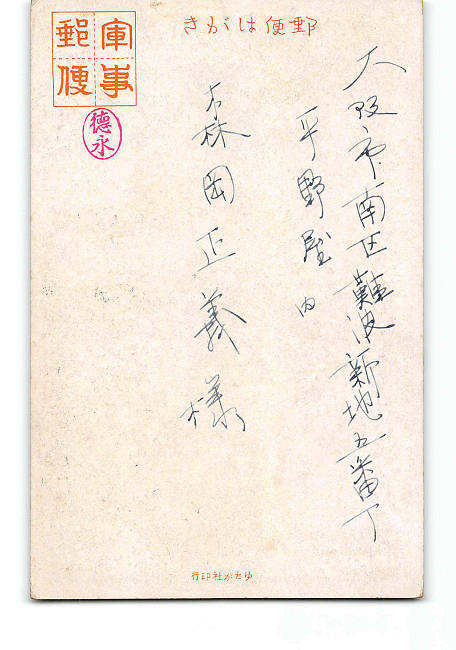 郵便はがき
軍事
郵便
德永
大阪市南区難波新地五番丁
平野屋内
森岡正義様
ゆたか社印行